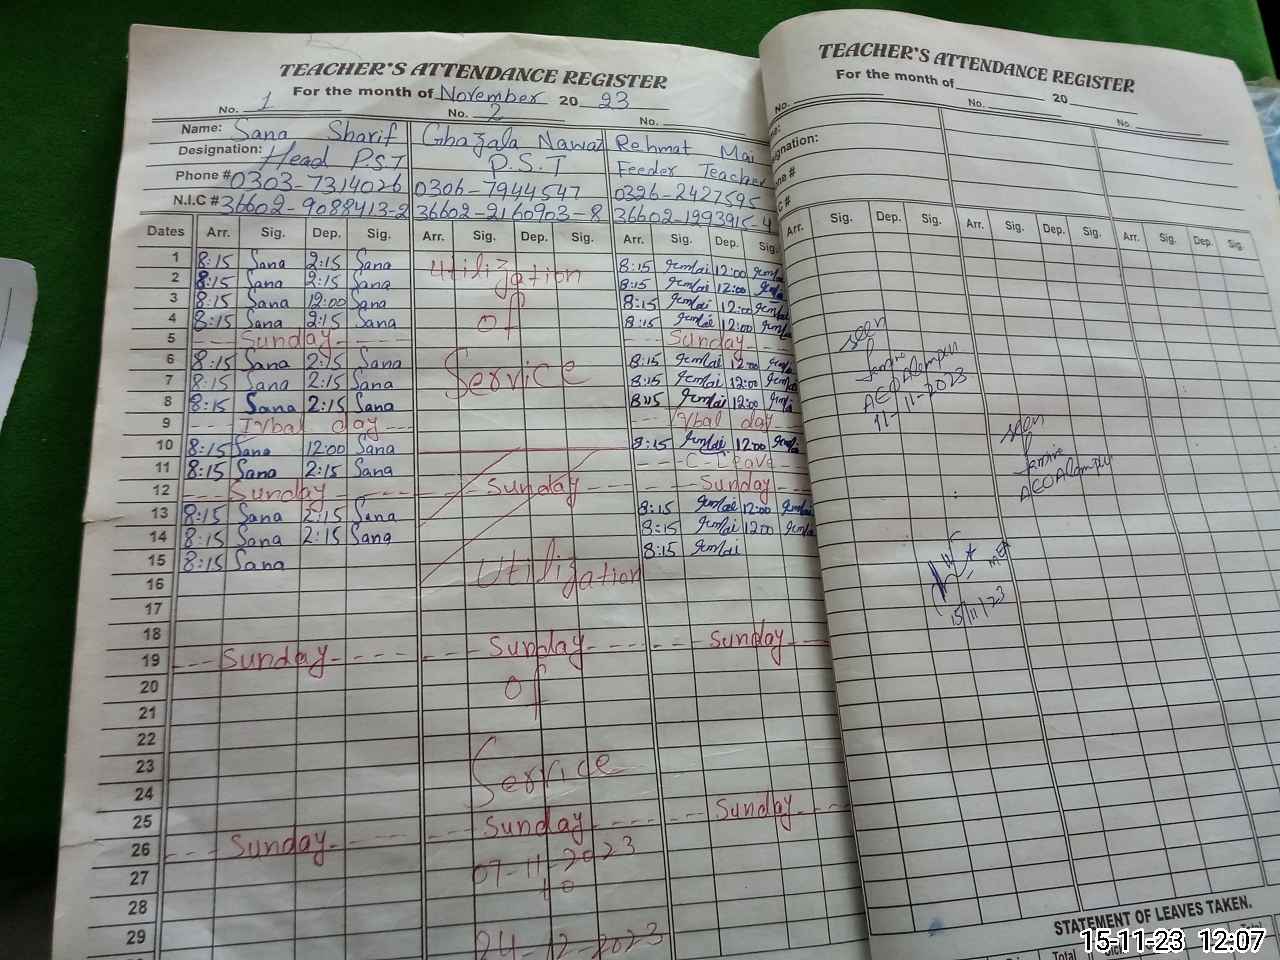 TEACHER'S ATTENDANCE REGISTER
For the month of November 20 23
No. 1 No. 2 No.
Name: Sana Sharif Ghazala Nawaz Rehmat Mai
Designation: Head P.S.T P.S.T Feeder Teacher
Phone # 0303-7314026 0306-7944547 0326-2427595
N.I.C # 36602-9088413-2 36602-2160903-8 36602-1993915-4
Dates Arr. Sig. Dep. Sig. Arr. Sig. Dep. Sig. Arr. Sig. Dep. Sig.
1 8:15 Sana 2:15 Sana Utilization 8:15 12:00
2 8:15 Sana 2:15 Sana 8:15 12:00
3 8:15 Sana 12:00 Sana of 8:15 12:00
4 8:15 Sana 2:15 Sana 8:15 12:00
5 Sunday Sunday
6 8:15 Sana 2:15 Sana Service 8:15 12:00
7 8:15 Sana 2:15 Sana 8:15 12:00
8 8:15 Sana 2:15 Sana 8:15 12:00
9 Iqbal day Iqbal day
10 8:15 Sana 12:00 Sana 8:15 12:00
11 8:15 Sana 2:15 Sana C-Leave
12 Sunday Sunday Sunday
13 8:15 Sana 2:15 Sana 8:15 12:00
14 8:15 Sana 2:15 Sana 8:15 12:00
15 8:15 Sana Utilization 8:15
16
17
18
19 Sunday Sunday Sunday
20 of
21
22
23 Service
24
25
26 Sunday Sunday Sunday
27 07-11-2023
28 to
29 24-12-2023
TEACHER'S ATTENDANCE REGISTER
For the month of 20
No. No. No.
Arr. Sig. Dep. Sig. Arr. Sig. Dep. Sig. Arr. Sig. Dep. Sig.
seen
AEO Alampur
11-11-2023
seen
AEO Alampur
15/11/23
STATEMENT OF LEAVES TAKEN.
Total
15-11-23 12:07